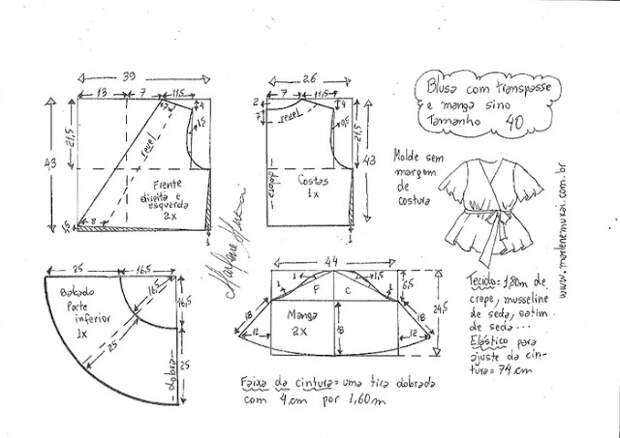 39
13
7
11,5
4
2
21,5
43
revel
1,5
Frente
direita e
esquerda
2x
8
1,5
1
26
7
11,5
2
7
4
revel
1,5
21,5
43
dobra
Costas
1x
1
Blusa com transpasse
e manga sino
Tamanho 40
Molde sem
margem
de
costura
www.marlenemukai.com.br
Marlene Mukai
25
16,5
Babado
Parte
inferior
1x
16,5
16,5
25
25
dobra
44
1
1,5
F
C
6,5
24,5
18
18
18
12
12
Manga
2x
Tecido = 1,80m de
crepe, musseline
de seda, cetim
de seda...
Elástico para
ajuste da cin-
tura = 74 cm
Faixa da cintura = uma tira dobrada
com 4 cm por 1,60 m